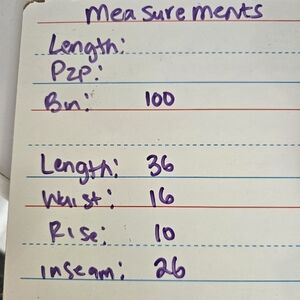 Measurements
Length:
P2P:
Bin: 100
Length: 36
Waist: 16
Rise: 10
inseam: 26